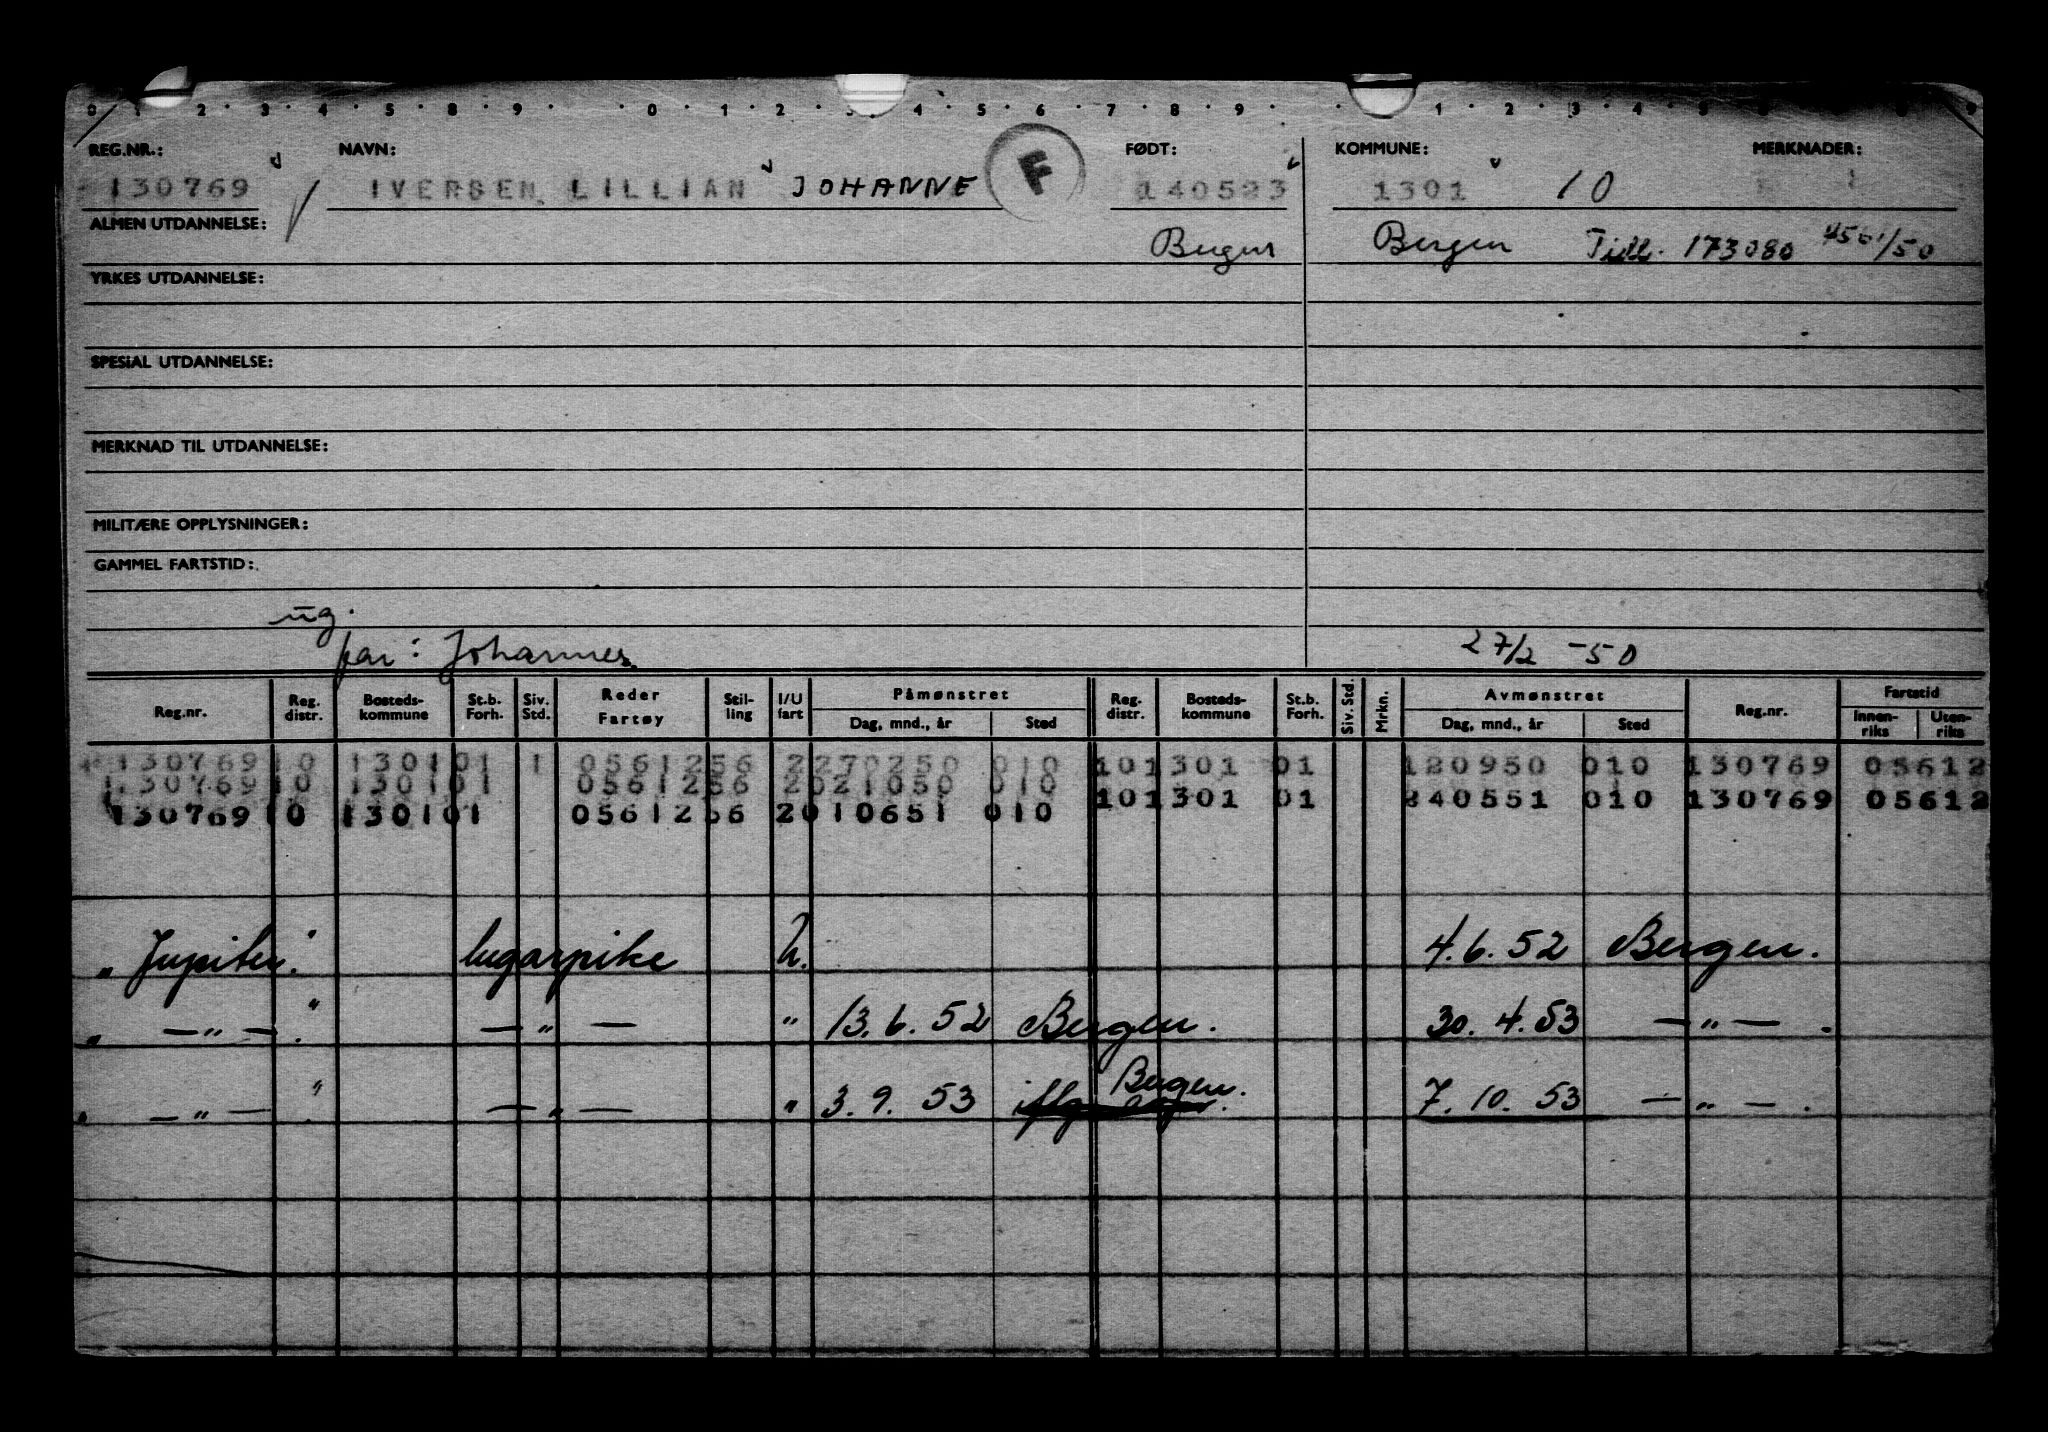 0 · 1 · 2 · 3 · 4 · 5 · 8 · 9 · · 0 · 1 · 2 · 3 · 4 · 5 · 6 · 7 · 8 · 9 · · 1 · 2 · 3 · 4 · 5
REG.NR.: NAVN: F FØDT: KOMMUNE: MERKNADER:
130769 IVERSEN LILLIAN JOHANNE 140523 1301 10
ALMEN UTDANNELSE: Bergen Bergen Till. 173080 /50
YRKES UTDANNELSE:
SPESIAL UTDANNELSE:
MERKNAD TIL UTDANNELSE:
MILITÆRE OPPLYSNINGER:
GAMMEL FARTSTID:
ug.
far: Johannes. 27/2 -50
Reg.nr. Reg. distr. Bosteds- kommune St.b. Forh. Siv. Std. Reder Fartøy Stil- ling I/U fart Påmønstret Dag, mnd., år Sted Reg. distr. Bosteds- kommune St.b. Forh. Siv. Std. Mrkn. Avmønstret Dag, mnd., år Sted Reg.nr. Fartstid Innen- riks Uten- riks
130769 10 1301 01 1 0561256 2 270250 010 10 1301 01 120950 010 130769 05612
130769 10 1301 01 0561256 2 021050 010 10 1301 01 240551 010 130769 05612
130769 10 1301 01 0561256 2 010651 010
„Jupiter." lugarpike U. 4.6.52 Bergen.
„ — " — ." — " — " 13.6.52 Bergen. 30.4.53 — " — .
„ — " — ." — " — " 3.9.53 Bergen. 7.10.53 — " — .